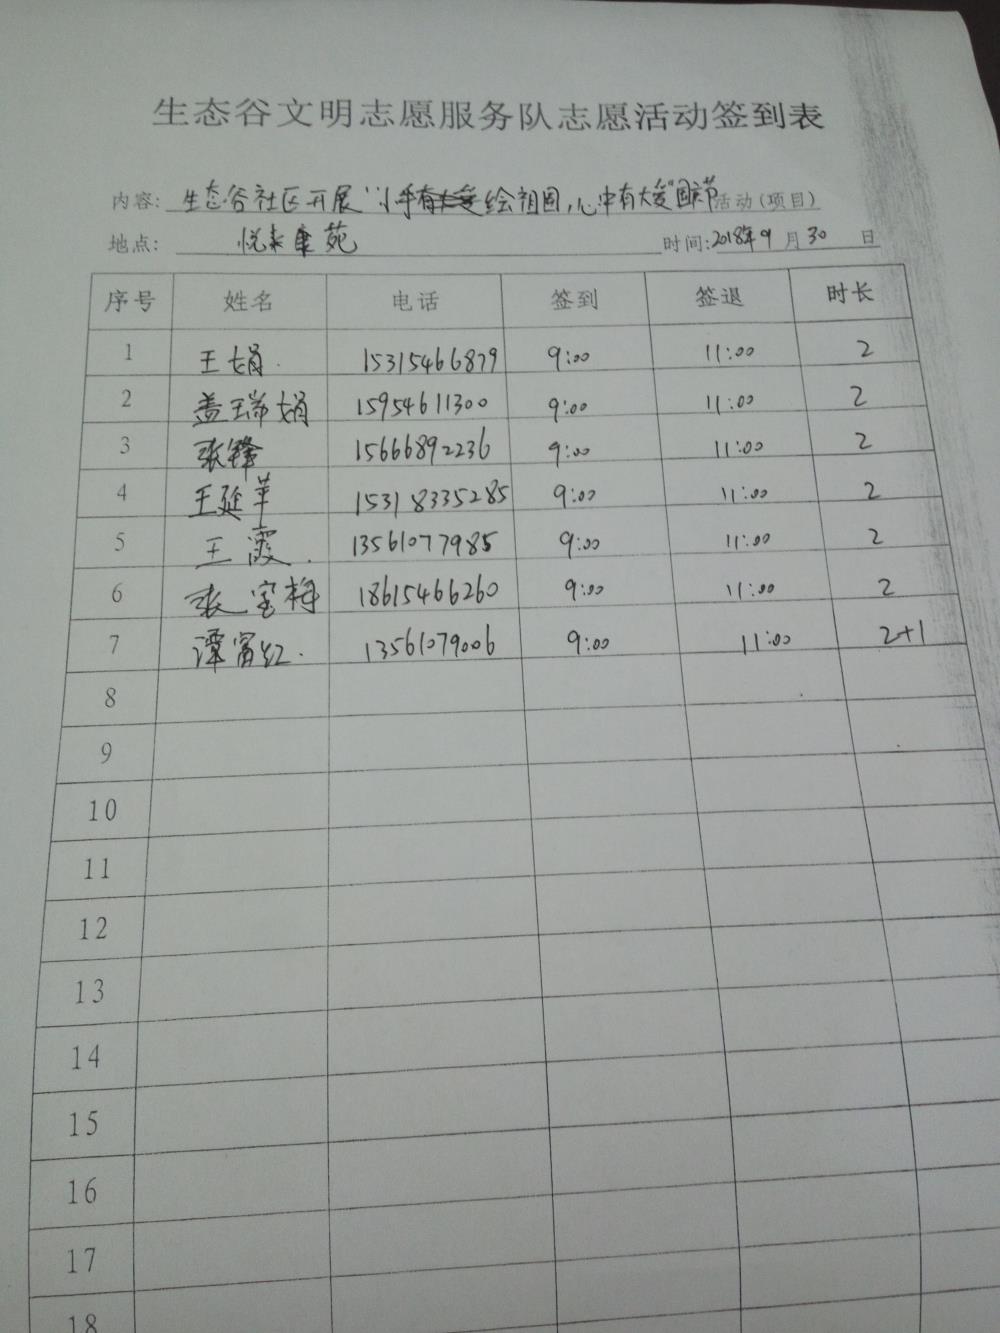 生态谷文明志愿服务队志愿活动签到表
内容: 生态谷社区开展"小手绘祖国,心中有大爱"国庆节活动(项目)
地点: 悦来康苑 时间:2018年9月30日
序号 姓名 电话 签到 签退 时长
1 王娟 15315466879 9:00 11:00 2
2 盖瑞娟 15954611300 9:00 11:00 2
3 张锋 15666892236 9:00 11:00 2
4 王延苹 15318335285 9:00 11:00 2
5 王霞 13561077985 9:00 11:00 2
6 张宝梅 18615466260 9:00 11:00 2
7 谭富红 13561079006 9:00 11:00 2+1
8
9
10
11
12
13
14
15
16
17
18